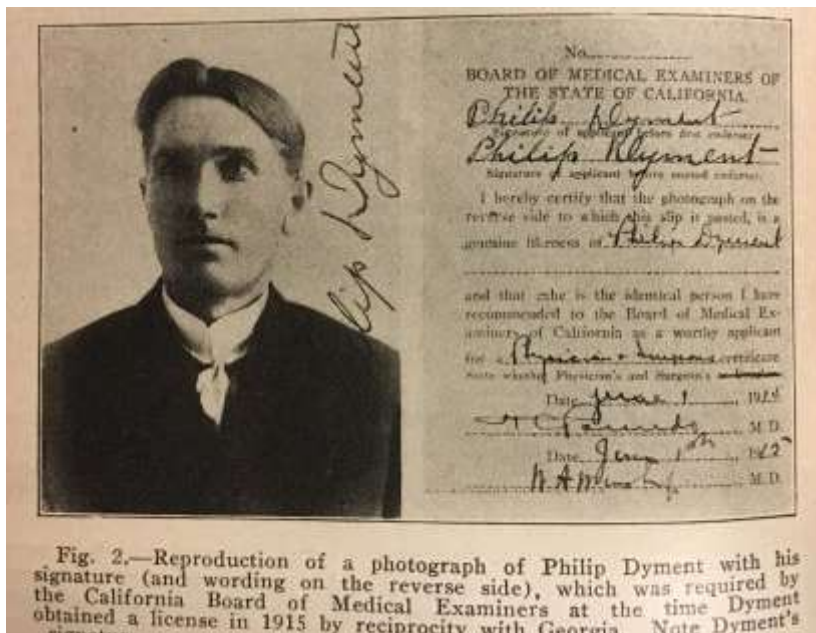 lip Dyment
No.
BOARD OF MEDICAL EXAMINERS OF
THE STATE OF CALIFORNIA
Philip Dyment
Signature of applicant before first endorser.
Philip Dyment
Signature of applicant before second endorser.
I hereby certify that the photograph on the
reverse side to which this slip is pasted, is a
genuine likeness of Philip Dyment
and that he is the identical person I have
recommended to the Board of Medical Ex-
aminers of California as a worthy applicant
for a Physician & Surgeons certificate
State whether Physician's and Surgeon's
Date June 1, 191
M.D.
Date June 1
M.D.
Fig. 2.—Reproduction of a photograph of Philip Dyment with his
signature (and wording on the reverse side), which was required by
the California Board of Medical Examiners at the time Dyment
obtained a license in 1915 by reciprocity with Georgia. Note Dyment's